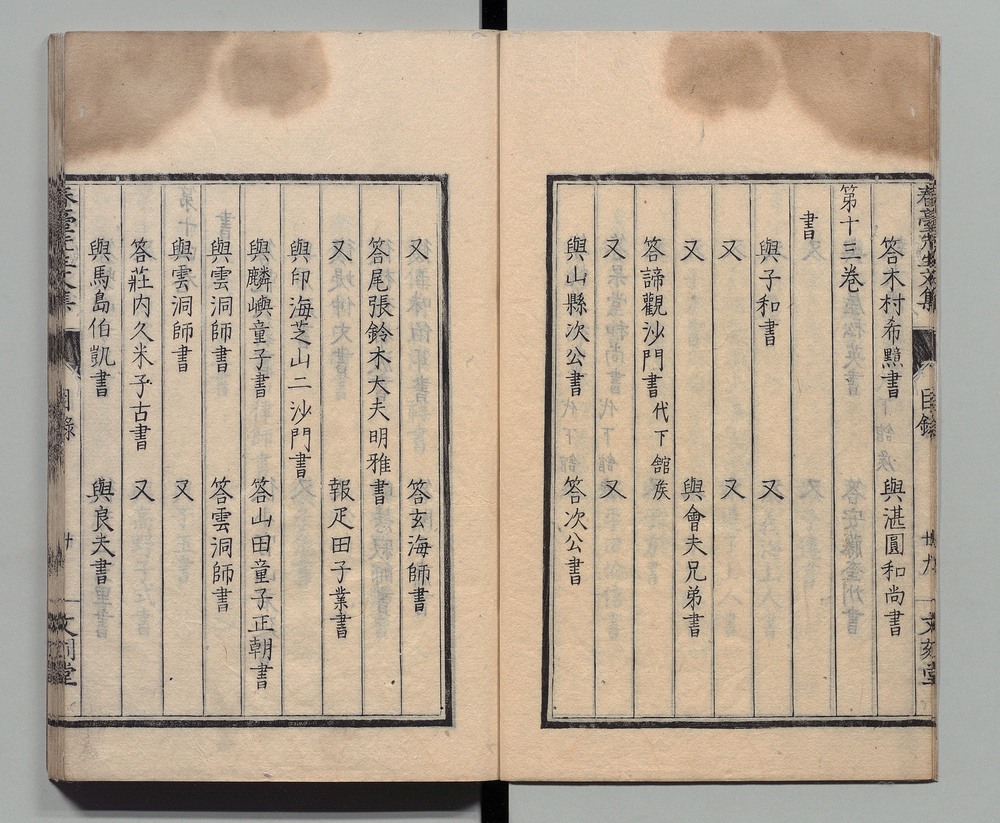 春臺先生文集 目錄 十九 文刻堂
答木村希黯書 與湛圓和尚書
第十三卷
書
與子和書 又
又 又
又 與會夫兄弟書
答諦觀沙門書代下館侯
又 又
與山縣次公書 答次公書
答玄海師書
答尾張鈴木大夫明雅書
又 報疋田子業書
與印海芝山二沙門書
與麟嶼童子書 答山田童子正朝書
與雲洞師書 答雲洞師書
與雲洞師書 又
答莊內久米子古書 又
與馬島伯凱書 與良夫書
春臺先生文集 目錄 廿 文刻堂